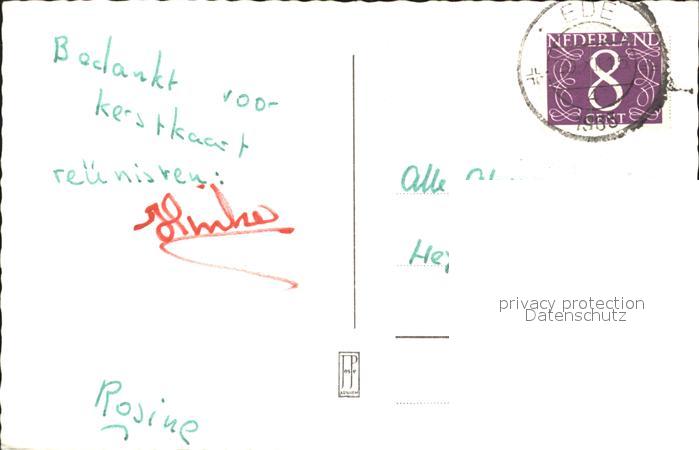 Bedankt voor
kerstkaart
reünisten:
Rosine
EDE
NEDERLAND
8
CENT
Alle
privacy protection
Datenschutz